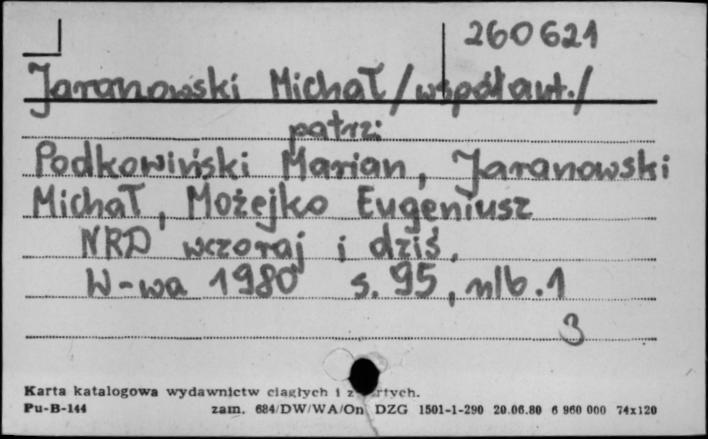 260621
Jaranowski Michał /współaut./
patrz:
Podkowiński Marian, Jaranowski
Michał, Możejko Eugeniusz
NRD wczoraj i dziś.
W-wa 1980 s. 95, nlb. 1
3
Karta katalogowa wydawnictw ciągłych i z rtych.
Pu-B-144 zam. 684/DW/WA/On DZG 1501-1-290 20.06.80 6 960 000 74x120